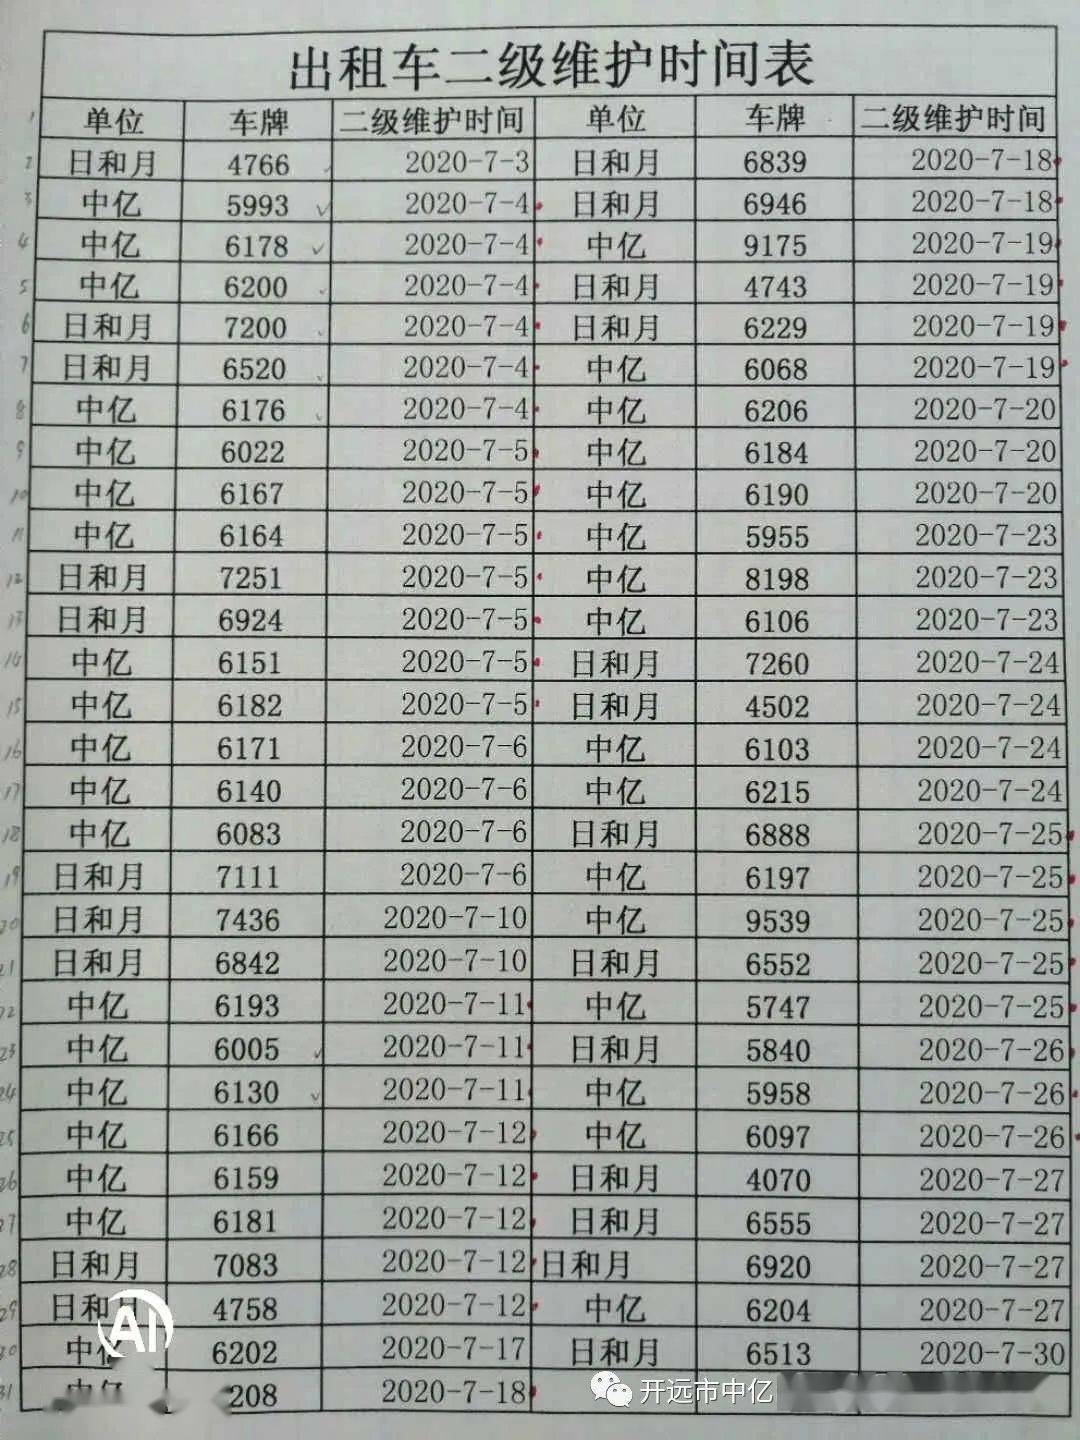 出租车二级维护时间表
单位 车牌 二级维护时间 单位 车牌 二级维护时间
日和月 4766 2020-7-3 日和月 6839 2020-7-18
中亿 5993 2020-7-4 日和月 6946 2020-7-18
中亿 6178 2020-7-4 中亿 9175 2020-7-19
中亿 6200 2020-7-4 日和月 4743 2020-7-19
日和月 7200 2020-7-4 日和月 6229 2020-7-19
日和月 6520 2020-7-4 中亿 6068 2020-7-19
中亿 6176 2020-7-4 中亿 6206 2020-7-20
中亿 6022 2020-7-5 中亿 6184 2020-7-20
中亿 6167 2020-7-5 中亿 6190 2020-7-20
中亿 6164 2020-7-5 中亿 5955 2020-7-23
日和月 7251 2020-7-5 中亿 8198 2020-7-23
日和月 6924 2020-7-5 中亿 6106 2020-7-23
中亿 6151 2020-7-5 日和月 7260 2020-7-24
中亿 6182 2020-7-5 日和月 4502 2020-7-24
中亿 6171 2020-7-6 中亿 6103 2020-7-24
中亿 6140 2020-7-6 中亿 6215 2020-7-24
中亿 6083 2020-7-6 日和月 6888 2020-7-25
日和月 7111 2020-7-6 中亿 6197 2020-7-25
日和月 7436 2020-7-10 中亿 9539 2020-7-25
日和月 6842 2020-7-10 日和月 6552 2020-7-25
中亿 6193 2020-7-11 中亿 5747 2020-7-25
中亿 6005 2020-7-11 日和月 5840 2020-7-26
中亿 6130 2020-7-11 中亿 5958 2020-7-26
中亿 6166 2020-7-12 中亿 6097 2020-7-26
中亿 6159 2020-7-12 日和月 4070 2020-7-27
中亿 6181 2020-7-12 日和月 6555 2020-7-27
日和月 7083 2020-7-12 日和月 6920 2020-7-27
日和月 4758 2020-7-12 中亿 6204 2020-7-27
中亿 6202 2020-7-17 日和月 6513 2020-7-30
中亿 208 2020-7-18
AI
开远市中亿